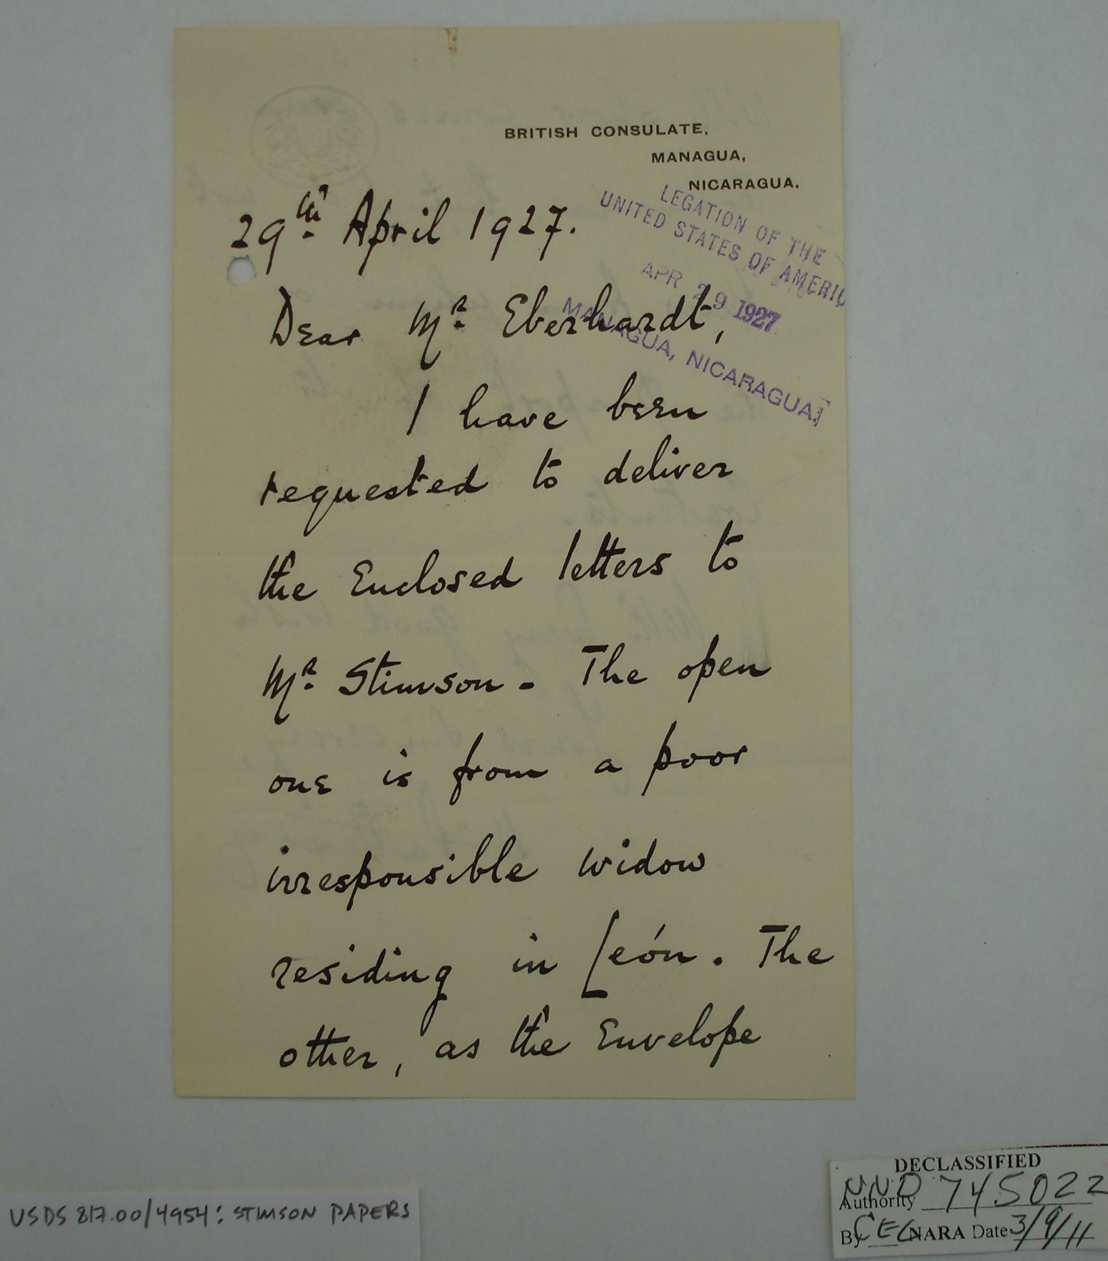 BRITISH CONSULATE,
MANAGUA,
NICARAGUA.
LEGATION OF THE
UNITED STATES OF AMERIC
APR 29 1927
MANAGUA, NICARAGUA.
29th April 1927.
Dear Mr. Eberhardt,
I have been
requested to deliver
the Enclosed letters to
Mr. Stimson - The open
one is from a poor
irresponsible widow
residing in León. The
other, as the Envelope
USDS 817.00/4954: STIMSON PAPERS
DECLASSIFIED
Authority NND 745022
By CEG NARA Date 3/9/11